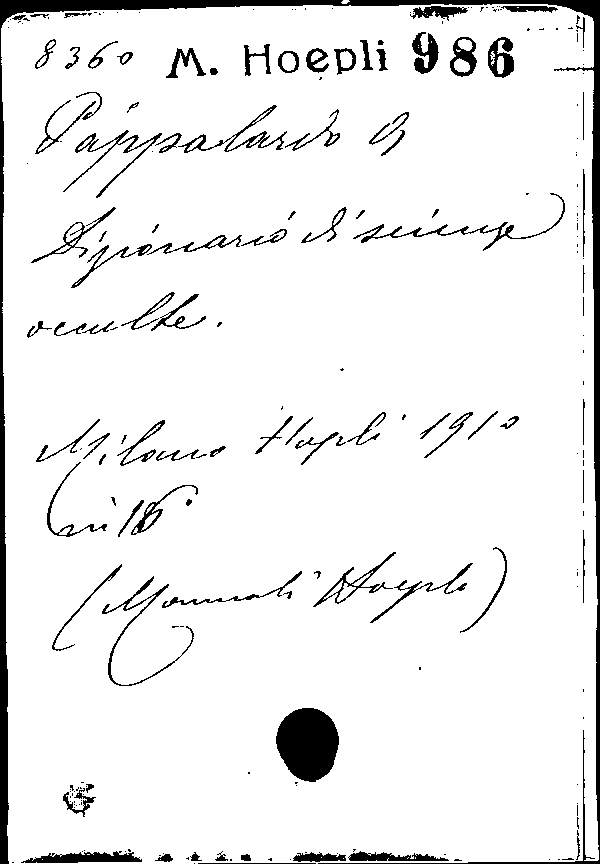 8360 M. Hoepli 986
Pappalardo A
Dizionario di scienze
occulte.
Milano Hoepli 1910
in 16°
(Manuali Hoepli)